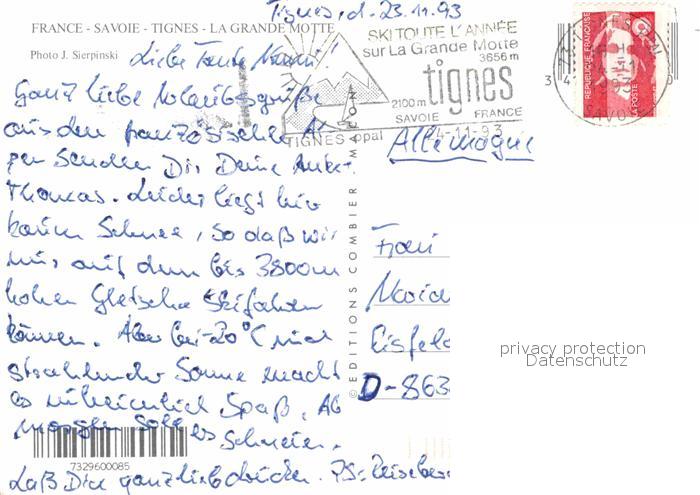 Tignes, d. 23.11.93
FRANCE - SAVOIE - TIGNES - LA GRANDE MOTTE
Photo J. Sierpinski
Liebe Tante Nanni!
Ganz liebe Urlaubsgrüße
aus den französischen Al-
pen senden Dir Deine
Thomas. Leider liegt hier
kaum Schnee, so daß wir
nur auf dem bis 3800m
hohen Gletscher Skifahren
können. Aber bei -20°C und
strahlender Sonne macht
es unheimlich Spaß. Ab
morgen soll es schneien.
Laß Dich ganz lieb drücken.
7329600085
© EDITIONS COMBIER MACON
SKI TOUTE L'ANNÉE
sur La Grande Motte
3656 m
tignes
2100 m
SAVOIE FRANCE
TIGNES
4-11-93
REPUBLIQUE FRANÇAISE
LA POSTE
Allemagne
Frau
Maria
Eisfeld
D-863
privacy protection
Datenschutz